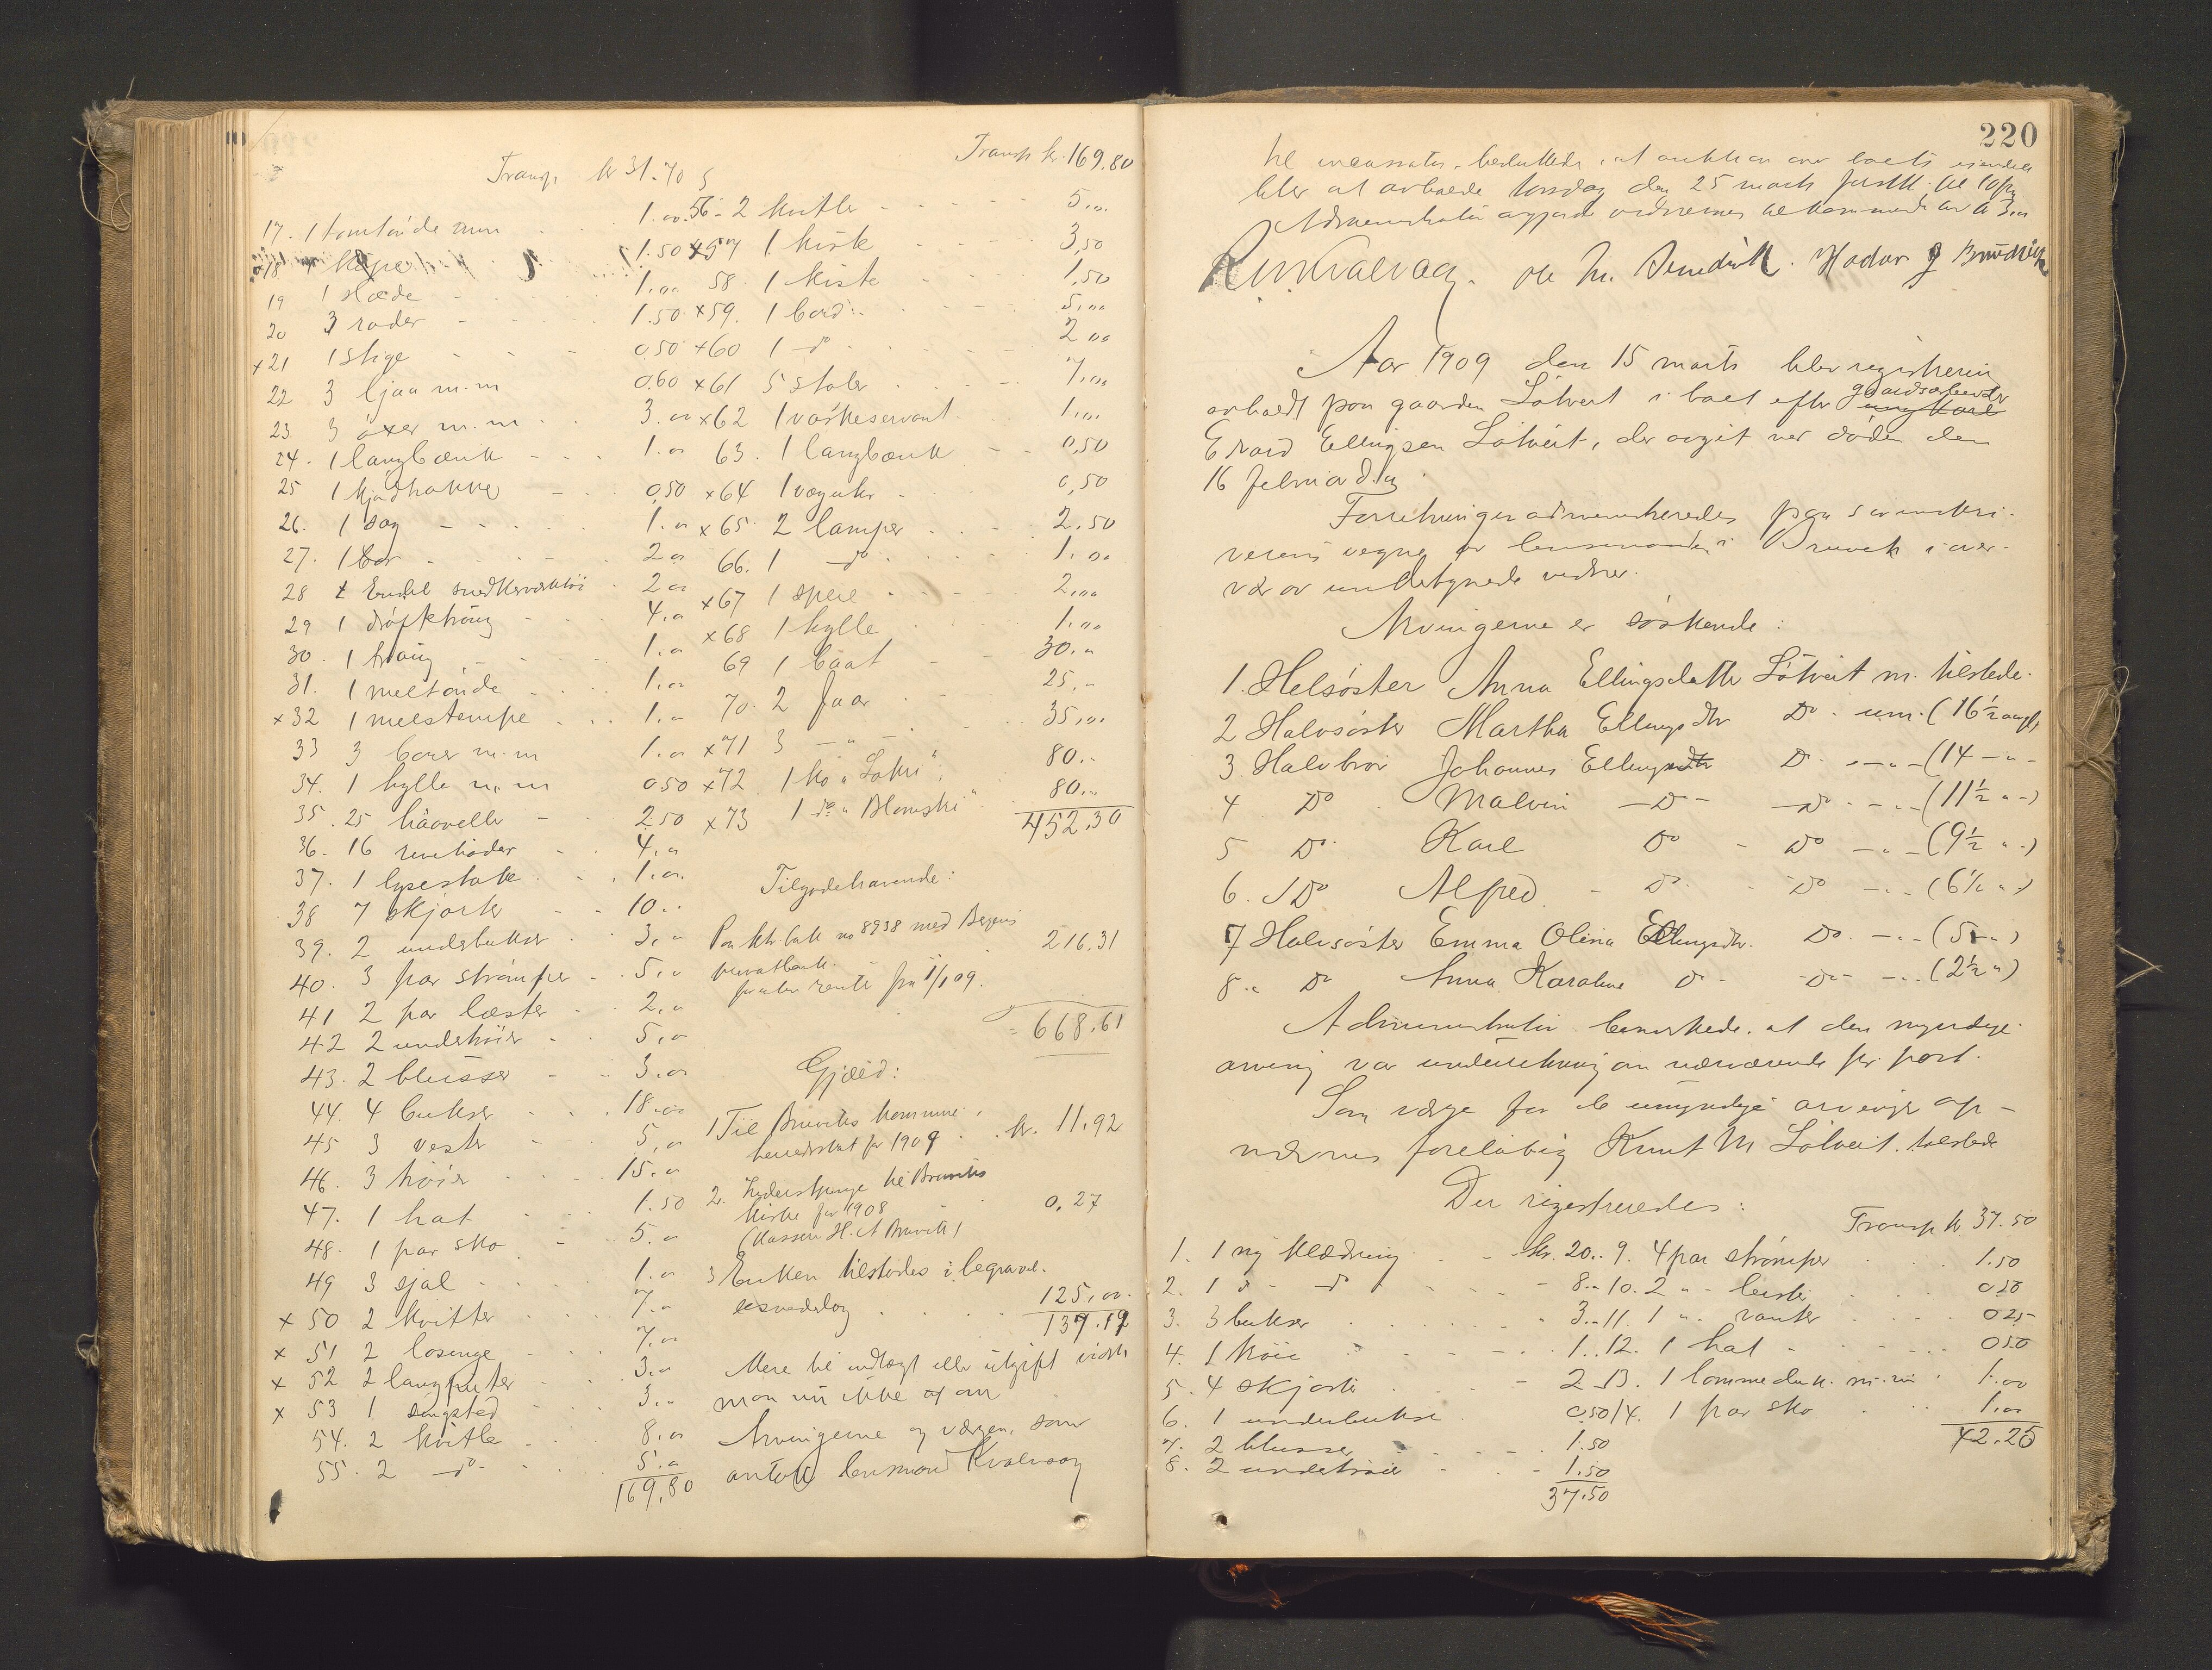 Transp. kr 31.70
17. 1 tomtønde m.m 1.00
18 1 kope 1.50
19 1 slæde 1.00
20 3 roder 1.50
x21 1 stige 0.50
22 3 ljaa m.m 0.60
23 3 øxer m.m 3.00
24. 1 langbænk 1.00
25 1 kjødhakke 0.50
26. 1 sag 1.00
27. 1 bor 2.00
28 Endel snedkerværktøi 2.00
29 1 drøftetroug 4.00
30. 1 troug 1.00
31. 1 meltønde 1.00
x32 1 melstempe 1.00
33 3 m.m 1.00
34. 1 hylle m.m 0.50
35. 25 2.50
36. 16 4.00
37. 1 lysestake 1.00
38 7 skjorter 10..
39. 2 underbukser 3.00
40. 3 par strømper 5.00
41 2 par læster 2.00
42 2 undertrøier 5.00
43. 2 blusser 3.00
44. 4 bukser 18.00
45 3 vester 5.00
46. 3 trøier 15.00
47. 1 hat 1.50
48. 1 par sko 5.00
49 3 sjal 1.00
x 50 2 kvitler 7.00
x 51 2 7.00
x 52 2 langputer 3.00
x 53 1 sengsted 3.00
54. 2 kvitle 8.00
55. 2 do 5.00
169.80
Transp kr. 169.80
56 - 2 kvitle 5.00
x57 1 kiste 3,50
58. 1 kiste 1,50
x59. 1 bord 5.00
x60 1 do 2.00
x61 5 stoler 7.00
x62 1 vaskeservant 1.00
63. 1 langbænk 0,50
x64 1 0,50
x65 2 lamper 2.50
66. 1 do 1.00
x67 1 speil 2.00
x68 1 hylle 1.00
69 1 baat 30.00
70. 2 faar 25.-
x71 3 - " - 35.00
x72. 1 ko " 80..
x73 1 do " 80..
452.30
Tilgodehavende:
Paa ktr.bok no 8938 med Bergens
privatbank 216.31
foruten rente fra 1/1 09.
668.61
Gjæld:
1 Til Bruviks kommune,
herredsskat for 1909 kr. 11.92
2. til Bruviks
kirke for 1908 0,27
(kasserer H. A Bruvik)
3 Enken tilstodes i begravel-
sesvederlag 125,00.
137.19
Mere til indtægt eller utgift vidste
man nu ikke af om
Arvingerne og værgen, som
antok lensmand Kvalvaag
220
til incassator, besluttede, at auktion over boets eiendele
blev at avholde torsdag den 25 marts førstk. kl 10 fm
Administrator vidnernes tilkommende av a 3.00
R. Kvalvaag. Ole M. Hodar J Bruvik
Aar 1909 den 15 marts blev registrering
avholdt paa gaarden Løtveit i boet efter gaardsarbeider
Edvard Ellingsen Løtveit, der avgik ved døden den
16 februar d. a.
Forretningen administreredes paa sorenskri-
verens vegne av lensmanden i Bruvik i over-
vær av undertegnede vidner.
Arvingerne er søskende:
1. Helsøster Anna Ellingsdatter Løtveit m. tilstede.
2 Halvsøster Martha Ellingsdtr Do - um. (16½ aar gl)
3. Halvbror Johannes Ellings Do - " - (14 - " -
4 Do Malvin - Do - - Do - " - (11½ " -)
5 Do Karl Do - Do - " - (9½ " -)
6. Do Alfred - Do - Do - " - (6½ " -)
7 Halvsøster Emma Olina Ellingsdtr. Do. - " - (5 - " -)
8 " Do Anna Karoline Do - - Do - - " - (2½ " -)
Administrator bemerkede, at den myndige
arving var underretning om nærværende pr. post.
Som værge for de umyndige arvinger op-
nævnes foreløbig Knut M Løtveit. tilstede
Der registreredes:
1. 1 ny klædning kr. 20..
2. 1 do - do 8..
3. 3 bukser 3..
4. 1 trøie 1..
5. 4 skjorter 2..
6. 1 underbukse 0.50
7. 2 blusser 1.50
8. 2 undertrøier 1.50
37.50
Transp kr 37.50
9. 4 par strømper 1.50
10. 2 " - leister 0.50
11. 1 " - vanter 0.25
12. 1 hat 0.50
13. 1 lommeduk m.m 1.00
14. 1 par sko 1.00
42.25